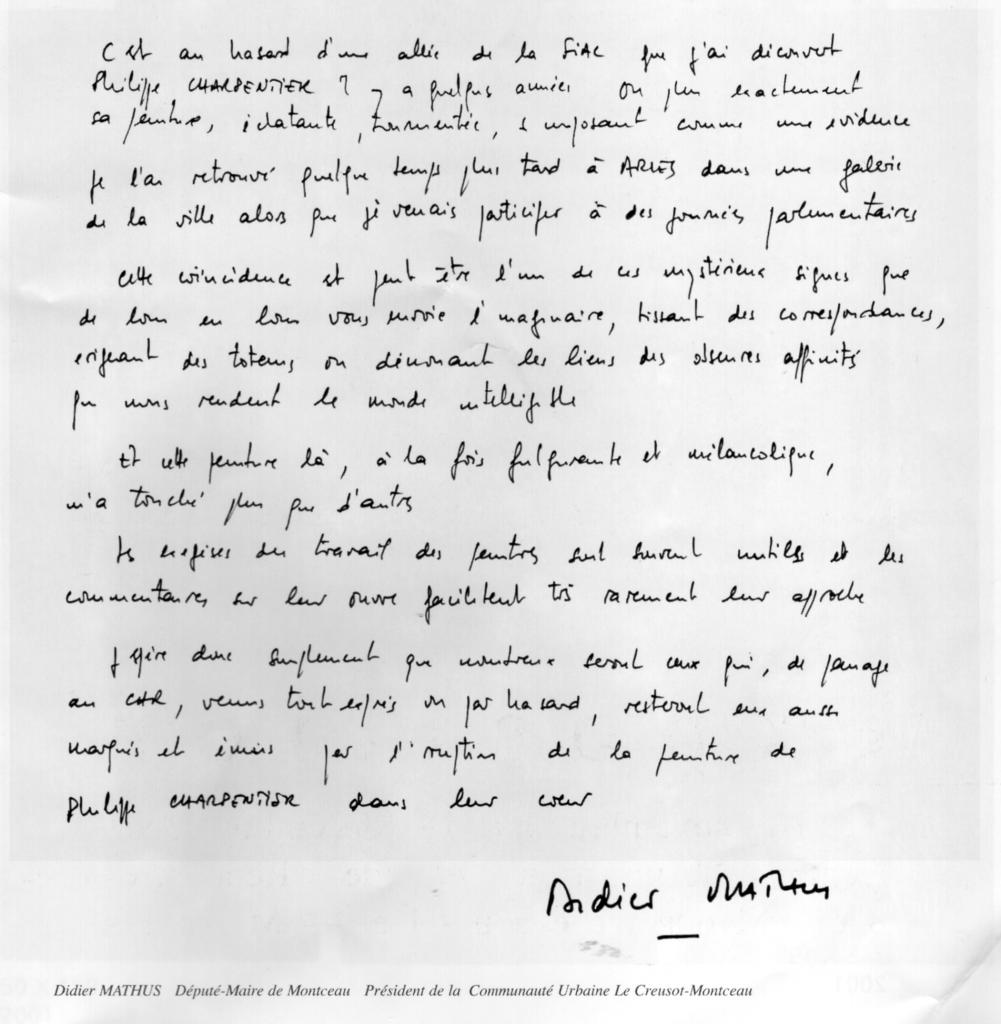 C'est au hasard d'une allée de la FIAC que j'ai découvert
Philippe CHARPENTIER il y a quelques années ou plus exactement
sa peinture, éclatante, tourmentée, s'imposant comme une évidence
Je l'ai retrouvé quelque temps plus tard à ARLES dans une galerie
de la ville alors que je venais participer à des journées parlementaires
Cette coïncidence est peut être l'un de ces mystérieux signes que
de loin en loin vous envoie l'imaginaire, tissant des correspondances,
érigeant des totems ou dénouant les liens des obscures affinités
qui nous rendent le monde intelligible
Et cette peinture là, à la fois fulgurante et mélancolique,
m'a touché plus que d'autres
Les exégèses du travail des peintres sont souvent inutiles et les
commentaires sur leur œuvre facilitent très rarement leur approche
J'espère donc simplement que nombreux seront ceux qui, de passage
au CAR, venus tout exprès ou par hasard, resteront eux aussi
marqués et émus par l'irruption de la peinture de
Philippe CHARPENTIER dans leur cœur
Didier MATHUS
Didier MATHUS Député-Maire de Montceau Président de la Communauté Urbaine Le Creusot-Montceau
2001